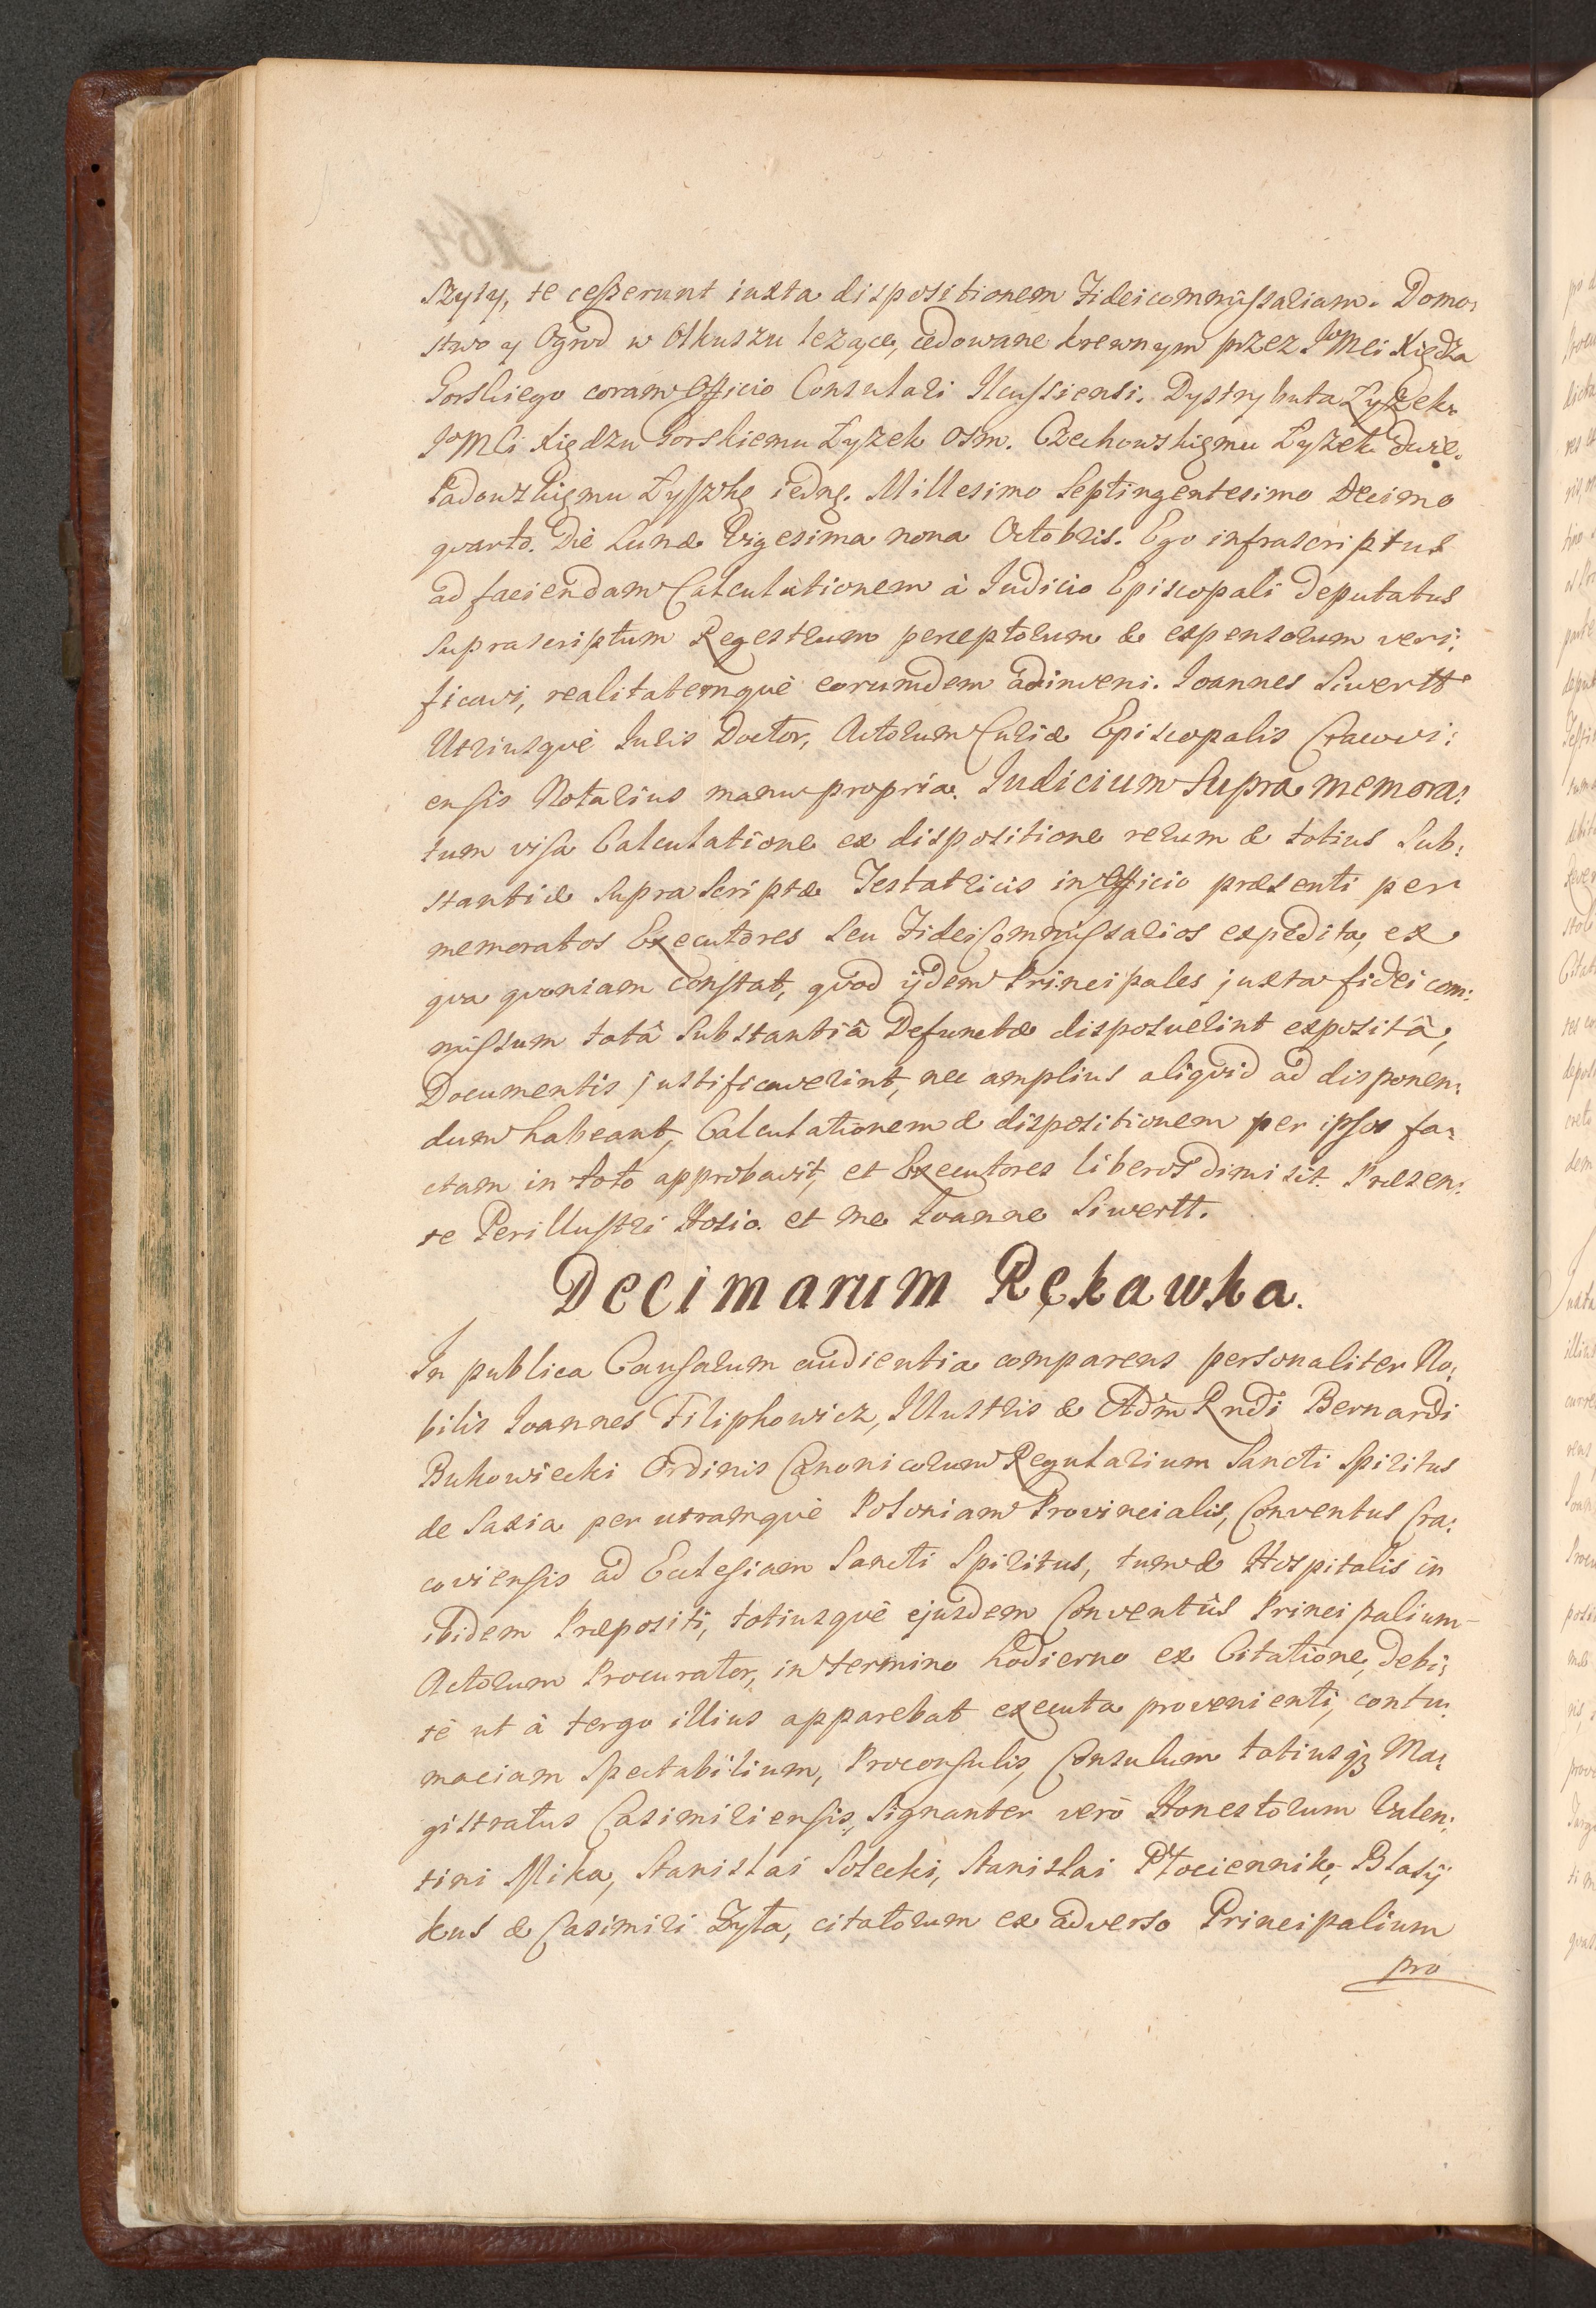 szyty, te cesserunt iuxta dispositionem Fideicommissariam. Domo:
stwo y Ogrod w Olkuszu lezące, cedowane krewnym przez JoMci Xiędza
Gorskiego coram Officio Consulari Ilcussiensi. Dystrybuta Łyżek.
JoMci Xiędzu Gorskiemu Łyżek osm. Czechowskięmu Łyżek dwie.
Padowskięmu Łyszkę iednę. Millesimo Septingentesimo Decimo
qvarto. Die Lunæ Vigesima nona Octobris. Ego infrascriptus
ad faciendam Calculationem à Iudicio Episcopali Deputatus
suprascriptum Regestrum perceptorum & expensorum veri:
ficavi, realitatemquè eorumdem adinveni. Joannes Siwertt
Utriusquè Iuris Doctor, Actorum Curiæ Episcopalis Cracovi:
ensis Notarius manu propria. Iudicium Supra memora:
tum visa Calculatione ex dispositione rerum & totius Sub:
stantiæ Supra Scriptæ Testatricis in Officio præsenti per
memoratos Executores seu FideiCommissarios expedita, ex
qva qvoniam constat, qvod ijdem Principales juxta fidei com:
missum totâ Substantiâ Defunctæ disposuerint expositâ,
Documentis justificaverint, nec amplius aliqvid ad disponen:
dum habeant, Calculationem & dispositionem per ipsos fa:
ctam in toto approbavit, et Executores liberos dimisit. Præsen:
te Perillustri Hosio. et me Joanne Siwertt.
Decimarum Rękawka.
In publica Causarum audientia comparens personaliter No:
bilis Joannes Filiphowicz, Illustris & Adm Rndi Bernardi
Bukowiecki Ordinis Canonicorum Regularium Sancti Spiritus
de Saxia per utramquè Poloniam Provincialis, Conventus Cra:
coviensis ad Ecclesiam Sancti Spiritus, tum & Hospitalis in
ibidem Præpositi, totiusquè ejusdem Conventûs Principalium
Actorum Procurator, in termino hodierno ex Citatione, debi:
tè ut à tergo illius apparebat executa provenienti, contu:
maciam Spectabilium, Proconsulis, Consulum totiusqz Ma:
gistratus Casimiriensis, Signanter verò Honestorum Valen:
tini Mika, Stanislai Solecki, Stanislai Płociennik, Blasij
kus & Casimiri Zyła, citatorum ex adverso Principalium
pro